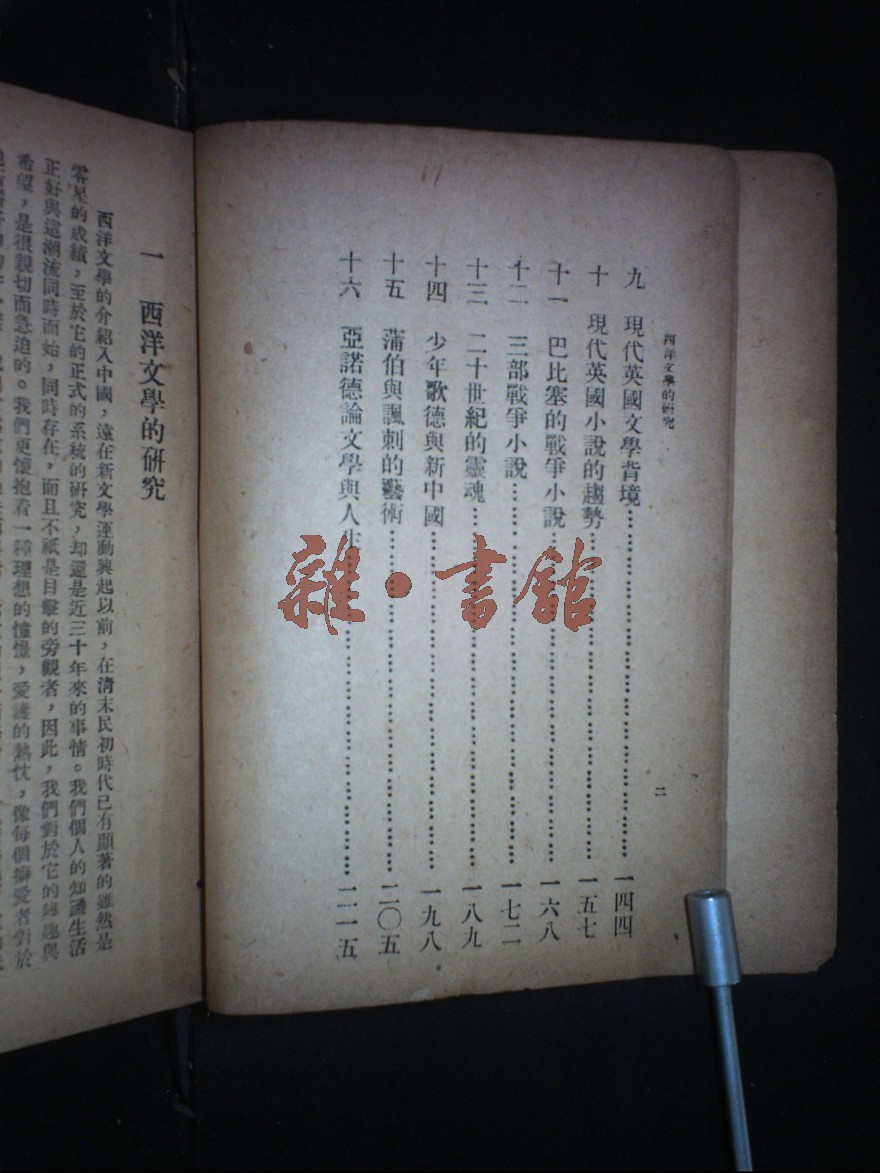 西洋文學的研究
九　現代英國文學背境……一四四
十　現代英國小說的趨勢……一五七
十一　巴比塞的戰爭小說……一六八
十二　三部戰爭小說……一七二
十三　二十世紀的靈魂……一八九
十四　少年歌德與新中國……一九八
十五　蒲伯與諷刺的藝術……二〇五
十六　亞諾德論文學與人生……二一五
二
雜·書館
一　西洋文學的研究
西洋文學的介紹入中國，遠在新文學運動興起以前，在清末民初時代已有顯著的雖然是
零星的成績，至於它的正式的系統的研究，却還是近三十年來的事情。我們個人的知識生活
正好與這潮流同時而始，同時存在，而且不祇是目擊的旁觀者，因此，我們對於它的興趣與
希望，是很親切而急迫的。我們更懷抱着一種理想的憧憬，愛護的熱忱，像每個癖愛者對於